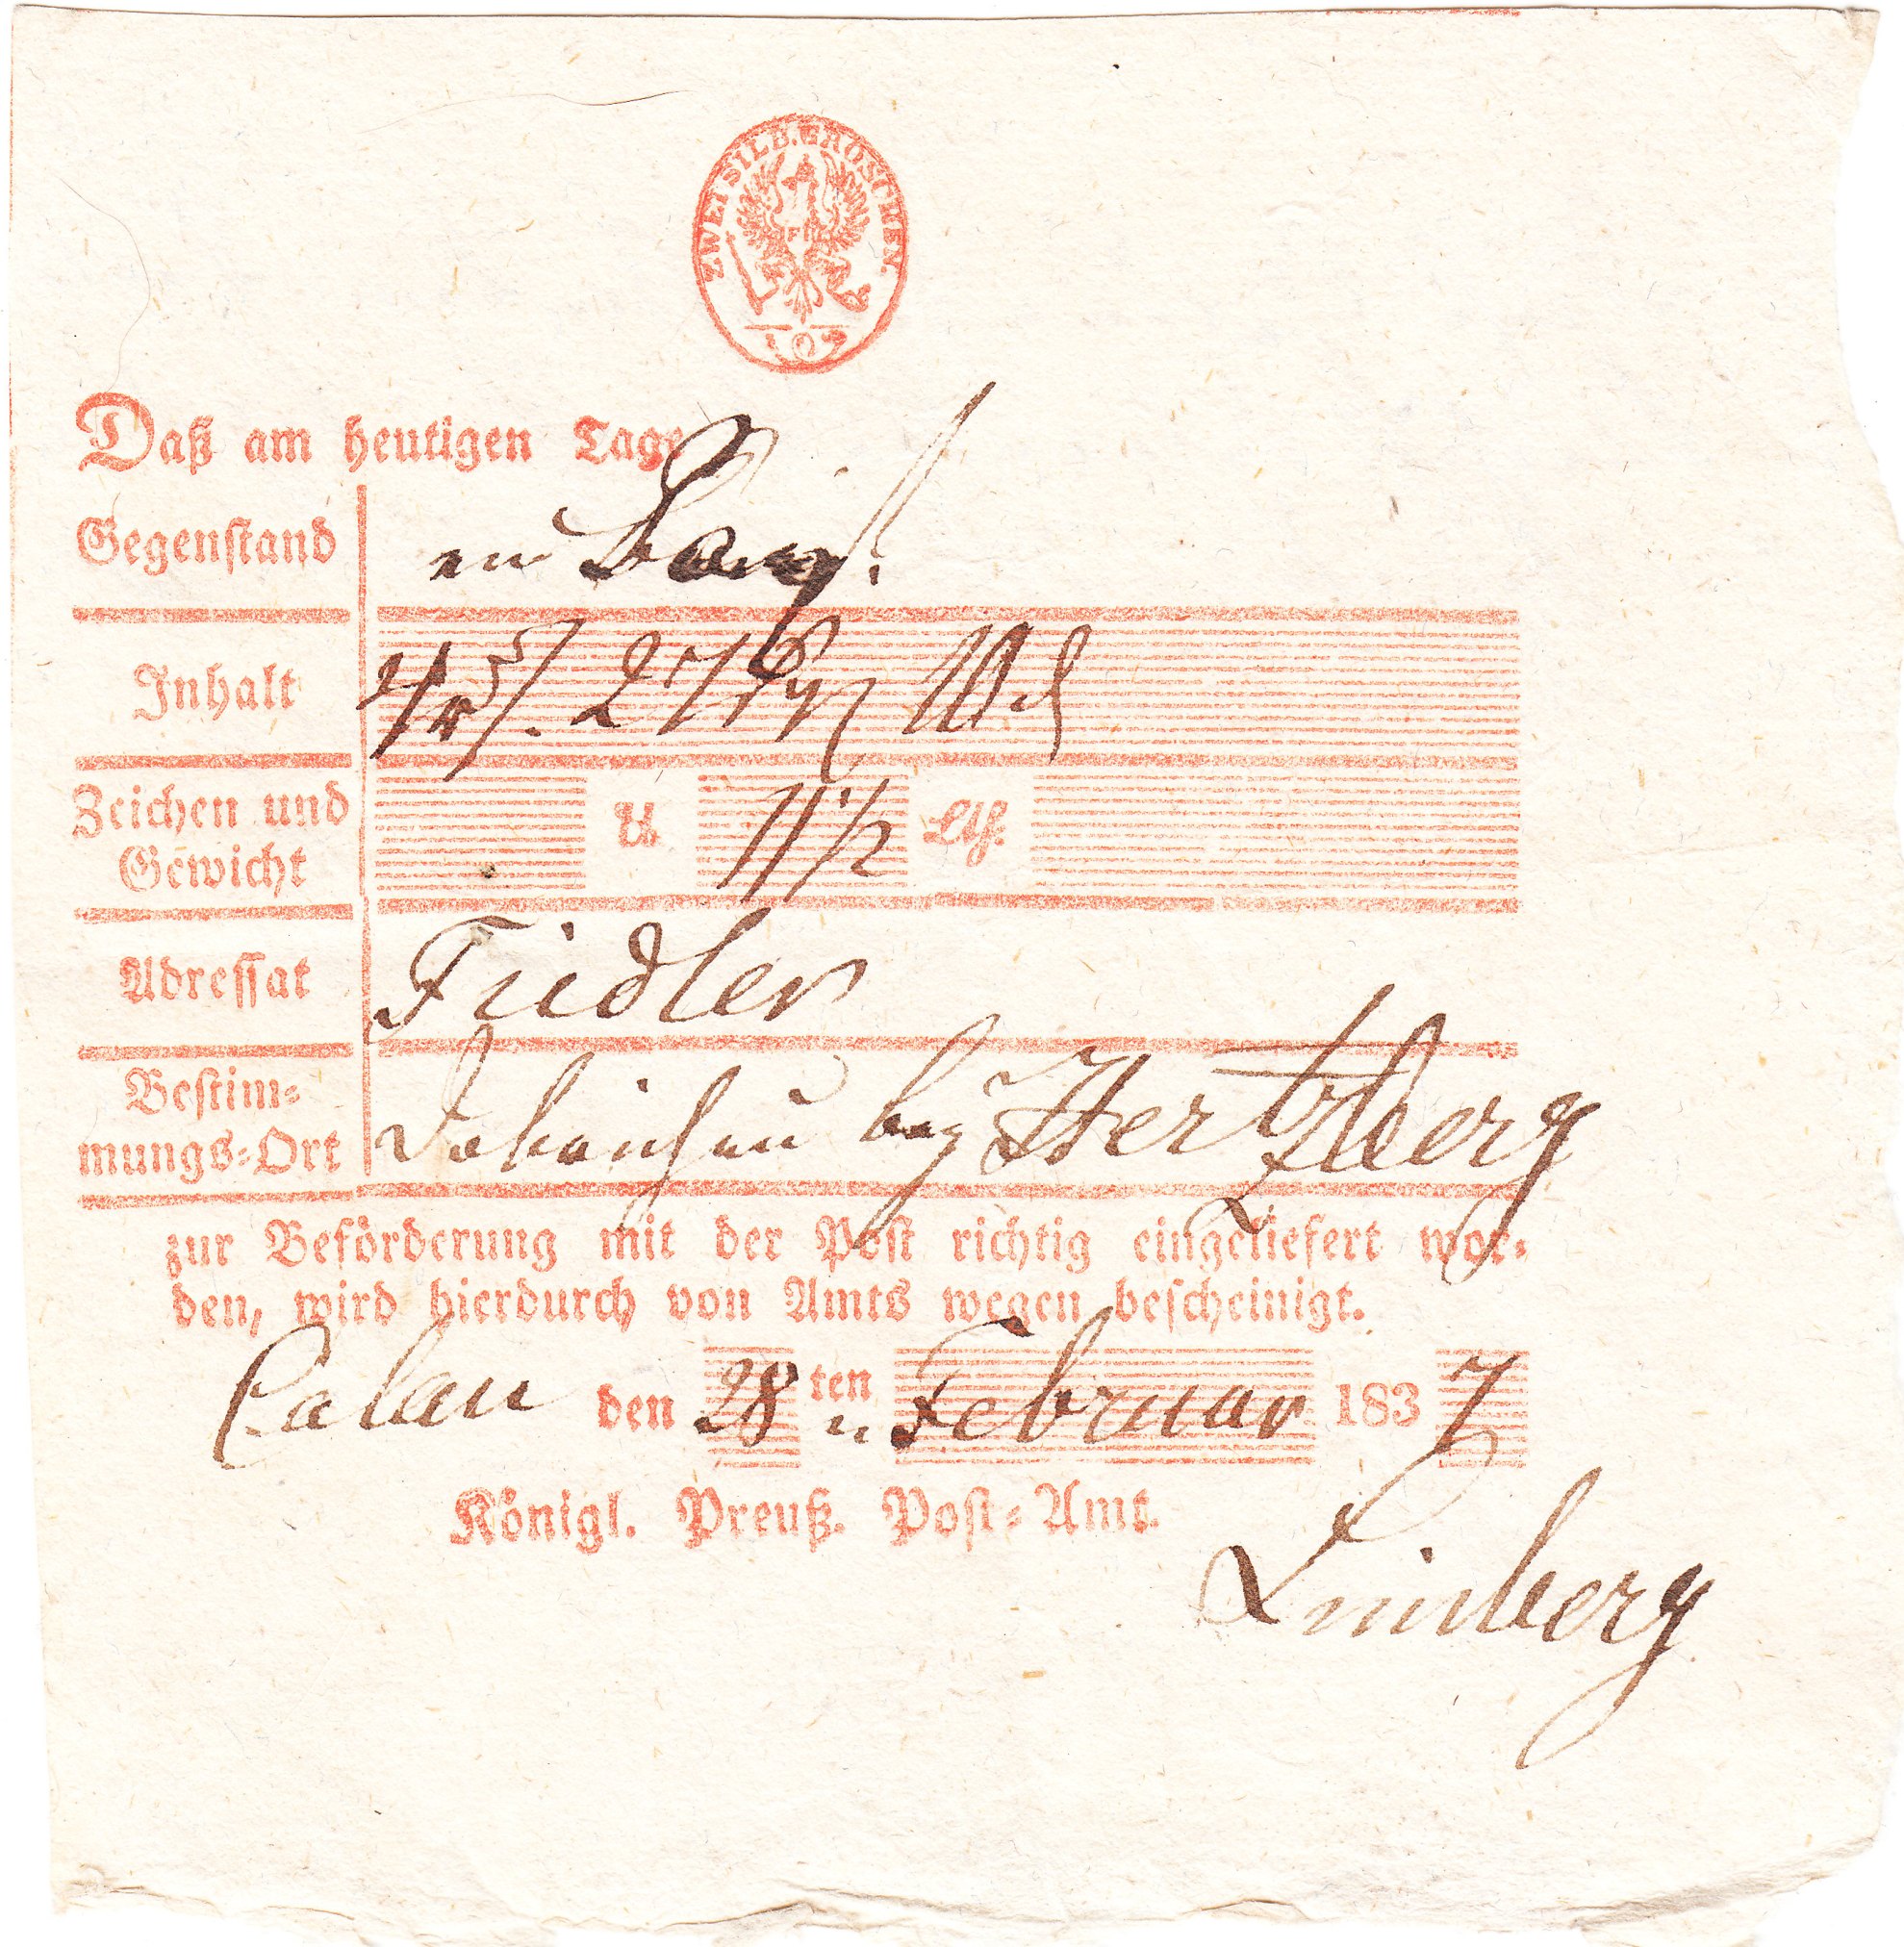 ZWEI SILB. GROSCHEN.
Daß am heutigen Tage
Gegenstand ein
Inhalt
Zeichen und
Gewicht ℔ 11 1/2 Lth.
Adressat Fiedler
Bestim-
mungs-Ort bey Hertzberg
zur Beförderung mit der Post richtig eingeliefert wor-
den, wird hierdurch von Amts wegen bescheinigt.
Calau den 28 ten Februar 1837
Königl. Preuß. Post-Amt.